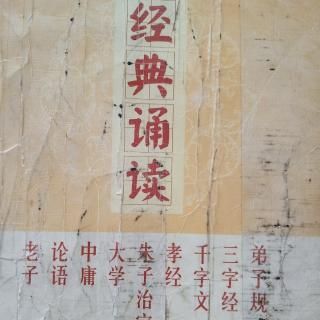 经典诵读
弟子规
三字经
千字文
孝经
朱子治家
大学
中庸
论语
老子